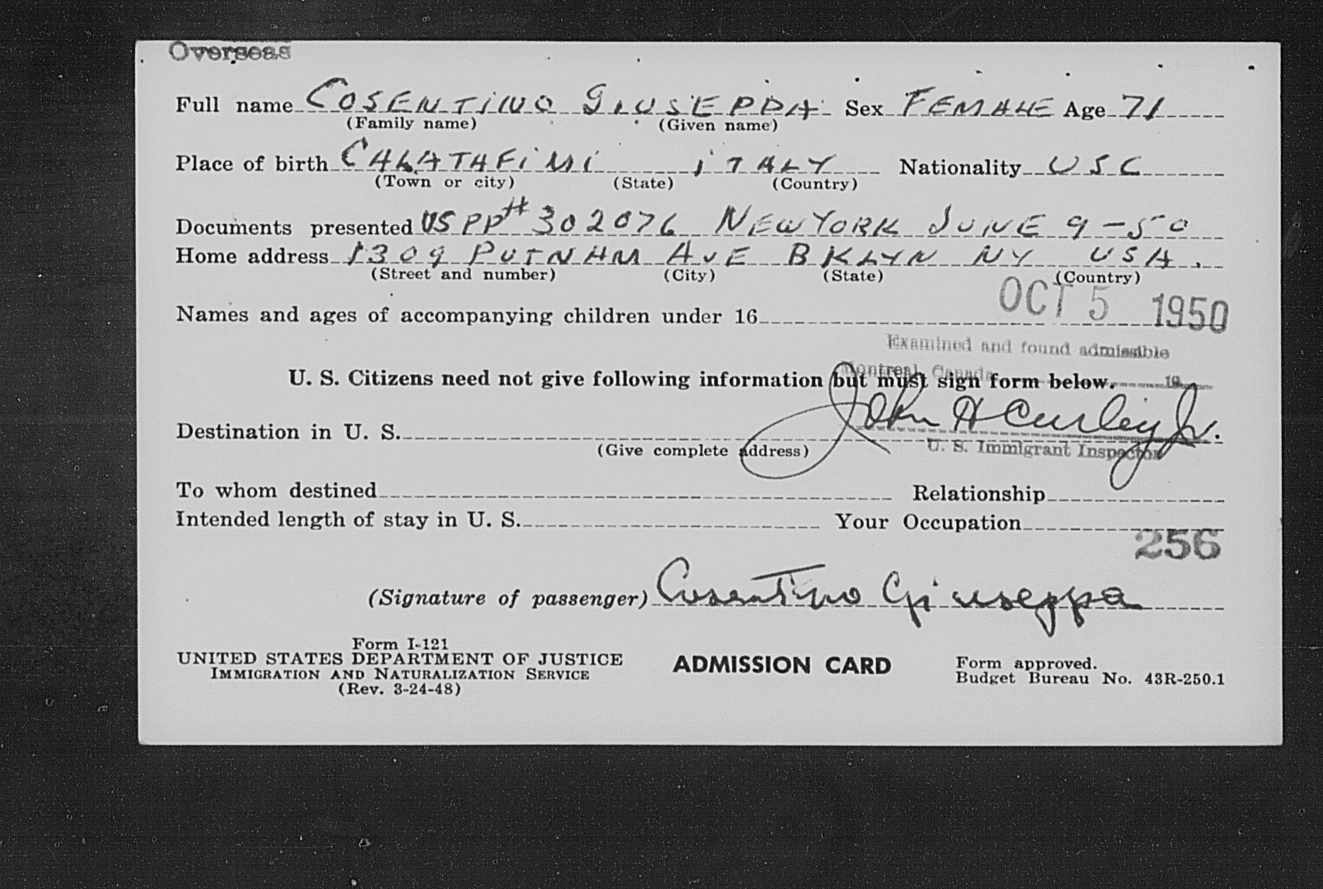 Overseas
Full name COSENTINO GIUSEPPA Sex FEMALE Age 71
(Family name) (Given name)
Place of birth CALATAFIMI ITALY Nationality USC
(Town or city) (State) (Country)
Documents presented US PP# 302076 NEW YORK JUNE 9-50
Home address 1309 PUTNAM AVE BKLYN NY USA.
(Street and number) (City) (State) (Country)
OCT 5 1950
Names and ages of accompanying children under 16
Examined and found admissible
Montreal, Canada 19
U. S. Citizens need not give following information but must sign form below.
John H Curley Jr.
Destination in U. S.
(Give complete address) U. S. Immigrant Inspector
To whom destined Relationship
Intended length of stay in U. S. Your Occupation
256
(Signature of passenger) Cosentino Giuseppa
Form I-121
UNITED STATES DEPARTMENT OF JUSTICE ADMISSION CARD Form approved.
IMMIGRATION AND NATURALIZATION SERVICE Budget Bureau No. 43R-250.1
(Rev. 3-24-48)